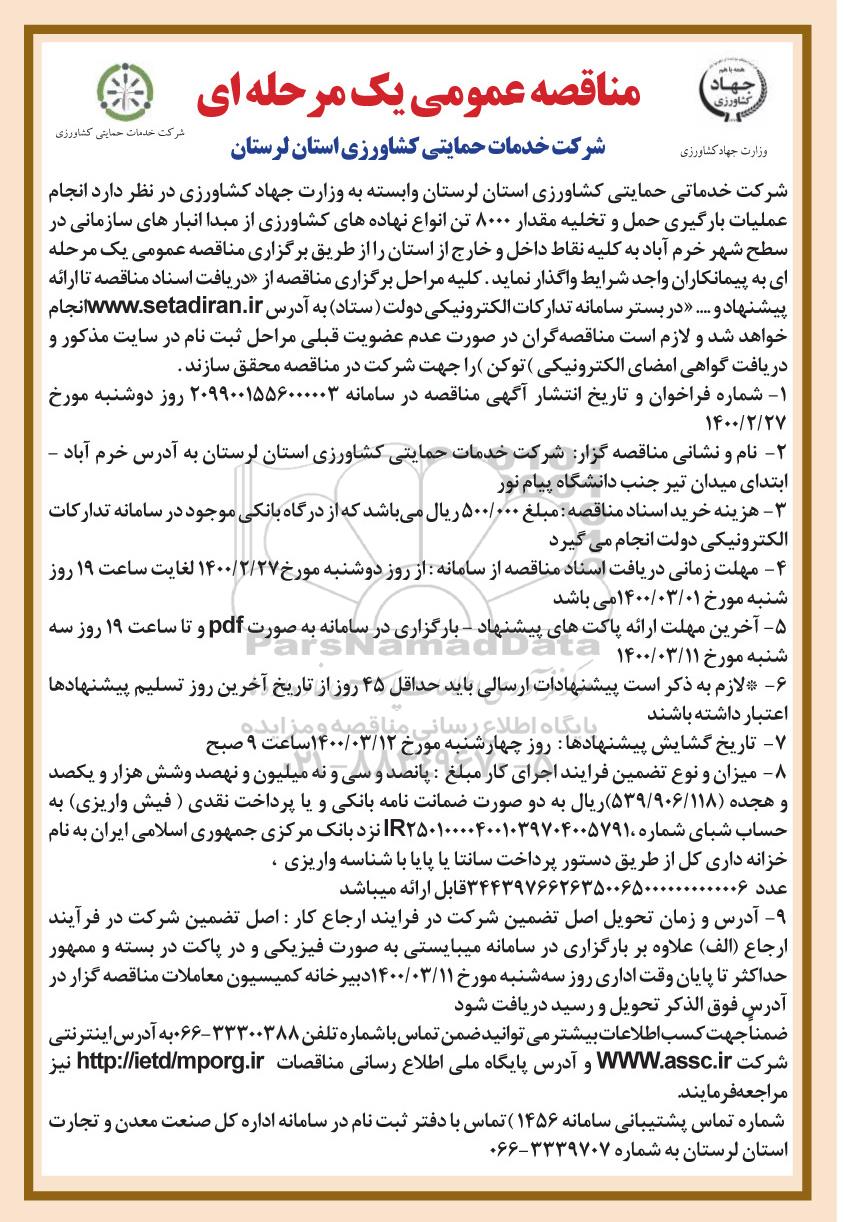 همه با هم
جهاد
کشاورزی
وزارت جهاد کشاورزی
مناقصه عمومی یک مرحله ای
شرکت خدمات حمایتی کشاورزی استان لرستان
شرکت خدمات حمایتی کشاورزی
شرکت خدماتی حمایتی کشاورزی استان لرستان وابسته به وزارت جهاد کشاورزی در نظر دارد انجام
عملیات بارگیری حمل و تخلیه مقدار ۸۰۰۰ تن انواع نهاده های کشاورزی از مبدا انبار های سازمانی در
سطح شهر خرم آباد به کلیه نقاط داخل و خارج از استان را از طریق برگزاری مناقصه عمومی یک مرحله
ای به پیمانکاران واجد شرایط واگذار نماید . کلیه مراحل برگزاری مناقصه از «دریافت اسناد مناقصه تا ارائه
پیشنهاد و .... «در بستر سامانه تدارکات الکترونیکی دولت ( ستاد) به آدرس www.setadiran.irانجام
خواهد شد و لازم است مناقصه‌گران در صورت عدم عضویت قبلی مراحل ثبت نام در سایت مذکور و
دریافت گواهی امضای الکترونیکی )توکن )را جهت شرکت در مناقصه محقق سازند .
۱- شماره فراخوان و تاریخ انتشار آگهی مناقصه در سامانه ۲۰۹۹۰۰۱۵۵۶۰۰۰۰۰۳ روز دوشنبه مورخ
۱۴۰۰/۲/۲۷
۲- نام و نشانی مناقصه گزار: شرکت خدمات حمایتی کشاورزی استان لرستان به آدرس خرم آباد -
ابتدای میدان تیر جنب دانشگاه پیام نور
۳- هزینه خرید اسناد مناقصه : مبلغ ۵۰۰/۰۰۰ ریال می‌باشد که از درگاه بانکی موجود در سامانه تدارکات
الکترونیکی دولت انجام می گیرد
۴- مهلت زمانی دریافت اسناد مناقصه از سامانه : از روز دوشنبه مورخ۱۴۰۰/۲/۲۷ لغایت ساعت ۱۹ روز
شنبه مورخ ۱۴۰۰/۰۳/۰۱می باشد
۵- آخرین مهلت ارائه پاکت های پیشنهاد - بارگزاری در سامانه به صورت pdf و تا ساعت ۱۹ روز سه
شنبه مورخ ۱۴۰۰/۰۳/۱۱
۶- *لازم به ذکر است پیشنهادات ارسالی باید حداقل ۴۵ روز از تاریخ آخرین روز تسلیم پیشنهادها
اعتبار داشته باشند
۷- تاریخ گشایش پیشنهادها : روز چهارشنبه مورخ ۱۴۰۰/۰۳/۱۲ساعت ۹ صبح
۸- میزان و نوع تضمین فرایند اجرای کار مبلغ : پانصد و سی و نه میلیون و نهصد وشش هزار و یکصد
و هجده (۵۳۹/۹۰۶/۱۱۸)ریال به دو صورت ضمانت نامه بانکی و یا پرداخت نقدی ( فیش واریزی) به
حساب شبای شماره ،IR۲۵۰۱۰۰۰۰۴۰۰۱۰۳۹۷۰۴۰۰۵۷۹۱ نزد بانک مرکزی جمهوری اسلامی ایران به نام
خزانه داری کل از طریق دستور پرداخت سانتا یا پایا با شناسه واریزی ،
عدد ۳۴۴۳۹۷۶۶۲۶۳۵۰۰۶۵۰۰۰۰۰۰۰۰۰۰۰۰۶قابل ارائه میباشد
۹- آدرس و زمان تحویل اصل تضمین شرکت در فرایند ارجاع کار : اصل تضمین شرکت در فرآیند
ارجاع (الف) علاوه بر بارگزاری در سامانه میبایستی به صورت فیزیکی و در پاکت در بسته و ممهور
حداکثر تا پایان وقت اداری روز سه‌شنبه مورخ ۱۴۰۰/۰۳/۱۱دبیرخانه کمیسیون معاملات مناقصه گزار در
آدرس فوق الذکر تحویل و رسید دریافت شود
ضمناً جهت کسب اطلاعات بیشتر می توانید ضمن تماس با شماره تلفن ۳۳۳۰۰۳۸۸-۰۶۶به آدرس اینترنتی
شرکت WWW.assc.ir و آدرس پایگاه ملی اطلاع رسانی مناقصات http://ietd/mporg.ir نیز
مراجعه‌فرمایند.
شماره تماس پشتیبانی سامانه ۱۴۵۶ )تماس با دفتر ثبت نام در سامانه اداره کل صنعت معدن و تجارت
استان لرستان به شماره ۳۳۳۹۷۰۷-۰۶۶
ParsNamadData
پایگاه اطلاع رسانی مناقصه و مزایده
۰۲۱-۸۸۳۴۹۶۷۰-۵